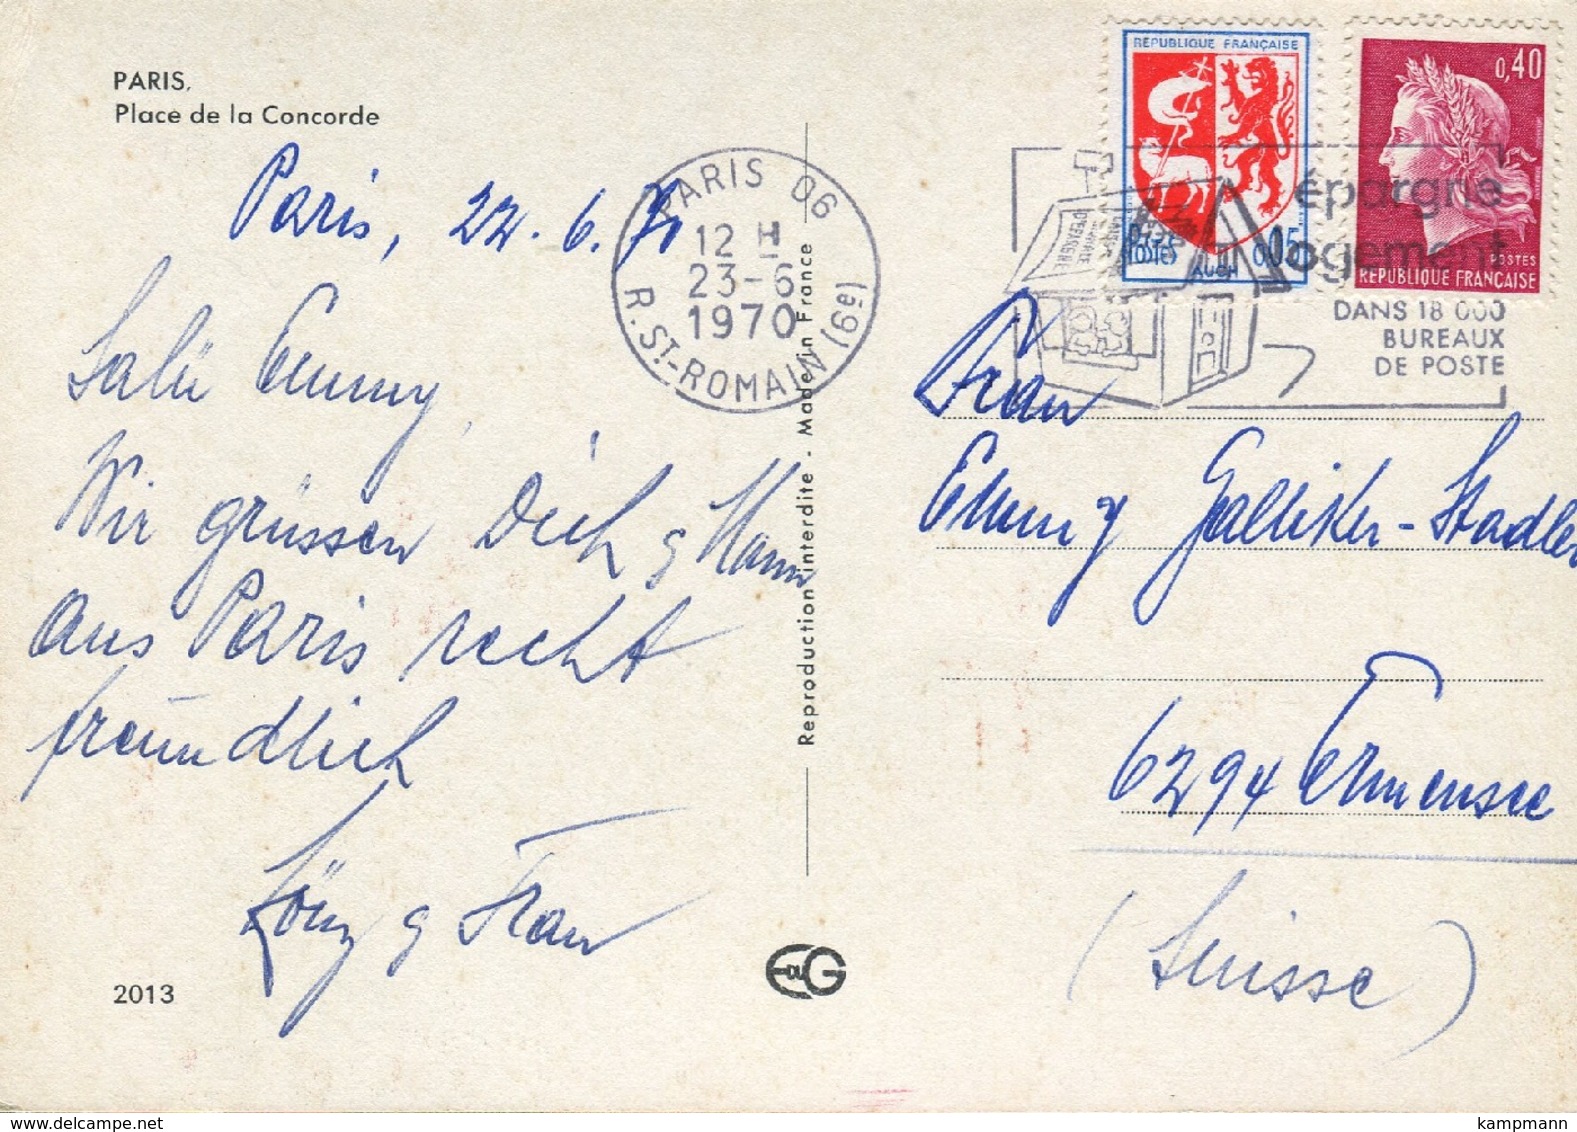 PARIS.
Place de la Concorde
Paris, 22.6.70
Salü Emmy,
Wir grüssen Dich & Mann
aus Paris recht
freundlich
& Frau
2013
PARIS 06
12 H
23-6
1970
R. ST-ROMAIN (6e)
Reproduction interdite - Made in France
RÉPUBLIQUE FRANÇAISE
POSTES
AUCH
0,05
0,40
POSTES
RÉPUBLIQUE FRANÇAISE
épargne
logement
DANS 18 000
BUREAUX
DE POSTE
Frau
Emmy Galliker-Stadler
6294 Ermensee
(Suisse)
delcampe.net
kampmann